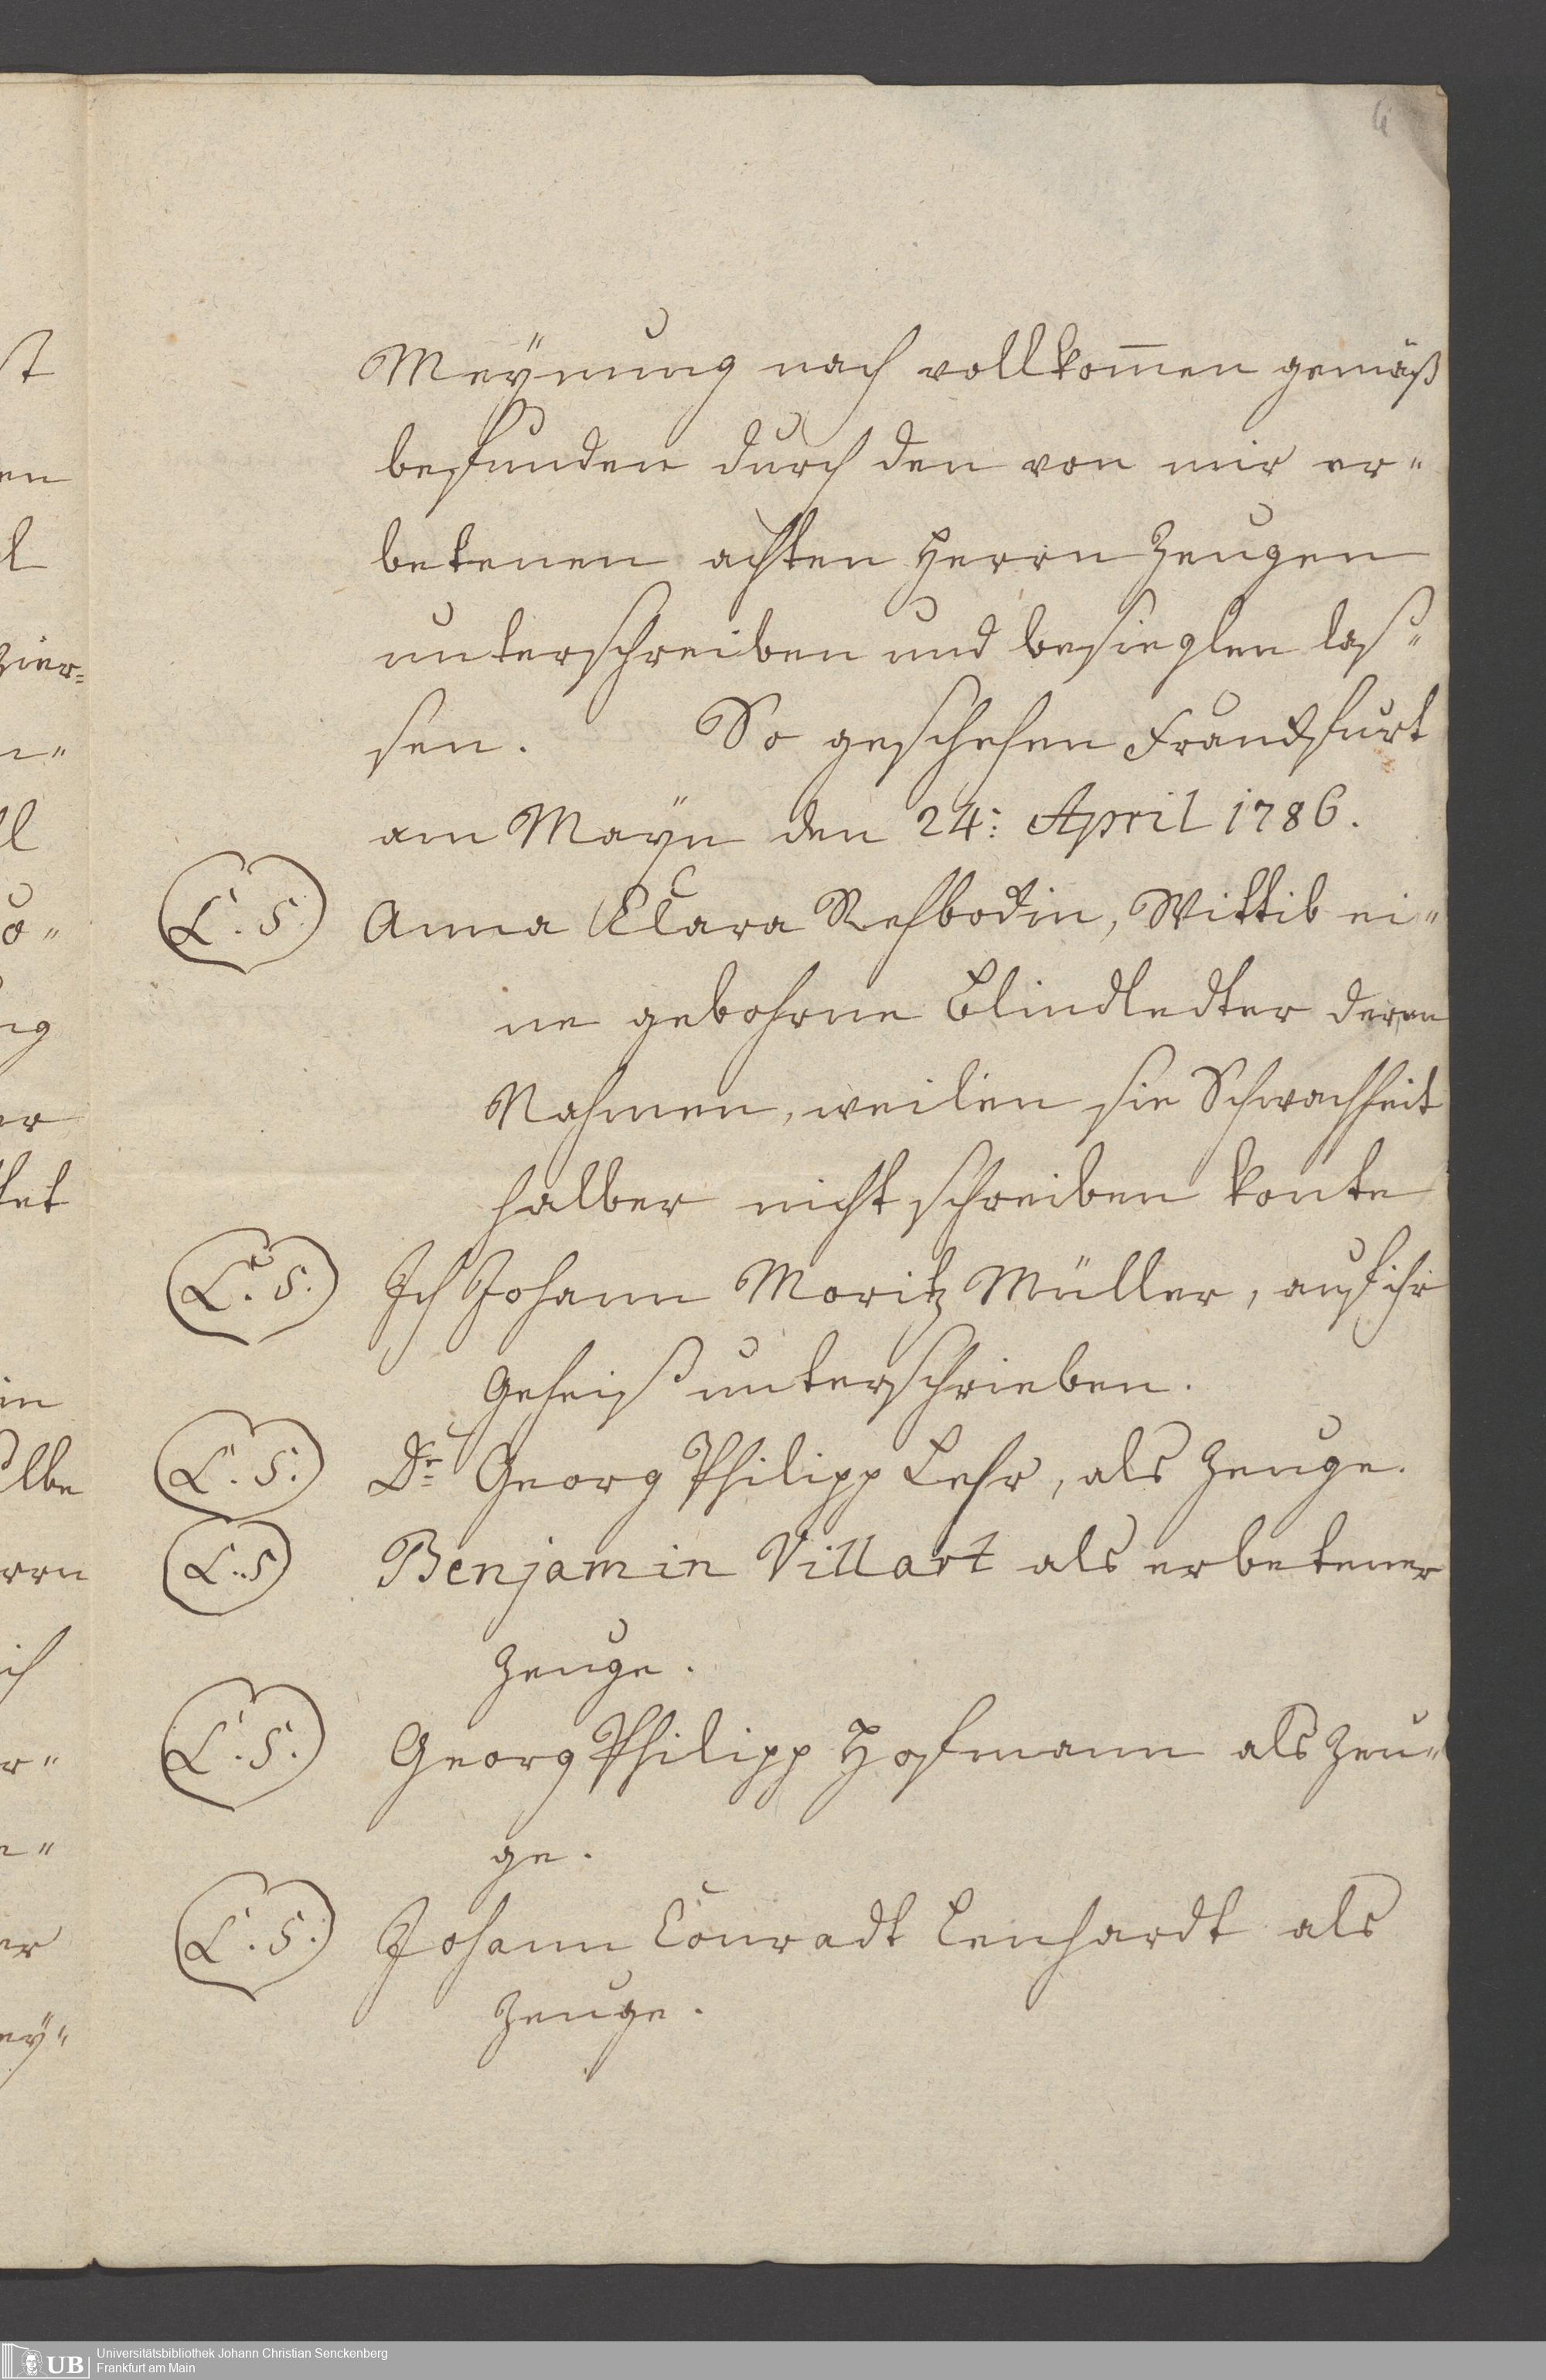 4
Meÿnung nach vollkom̄en gemäß
befunden durch den von mir er"
betenen achten Herrn Zeugen
unterschreiben und besieglen las"
sen. So geschehen Franckfurt
am Maÿn den 24: April 1786.
L. S. Anna Clara Rehbockin, Wittib ei"
ne gebohrne deren
Nahmen, weilen sie Schwachheit
halber nicht schreiben konte
L. S. Ich Johann Moritz Müller, auf ihr
Geheiß unterschrieben.
L. S. Dr Georg Philipp Lehr, als Zeuge.
L. S Benjamin Villart als erbetener
Zeuge.
L. S. Georg Philipp Hofmann als Zeu"
ge.
L. S. Johann Conradt Lenhardt als
Zeuge.
UB Universitätsbibliothek Johann Christian Senckenberg
Frankfurt am Main